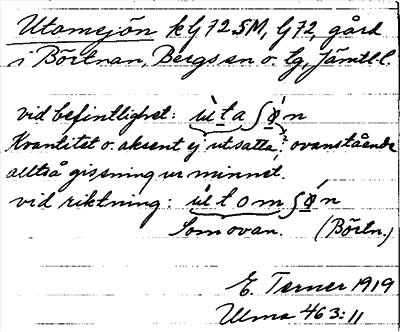 Utomsjön k G 72 SM, G 72, gård
i Börtnan, Bergs sn o. tg, Jämtl. l.
vid befintlighet: ùtaʃǿn
Kvantitet o. aksent ej utsatta; ovanstående
alltså gissning ur minnet.
vid riktning: ùtomʃǿn
Som ovan. (Börtn.)
E. Terner 1919
Ulma 463:11